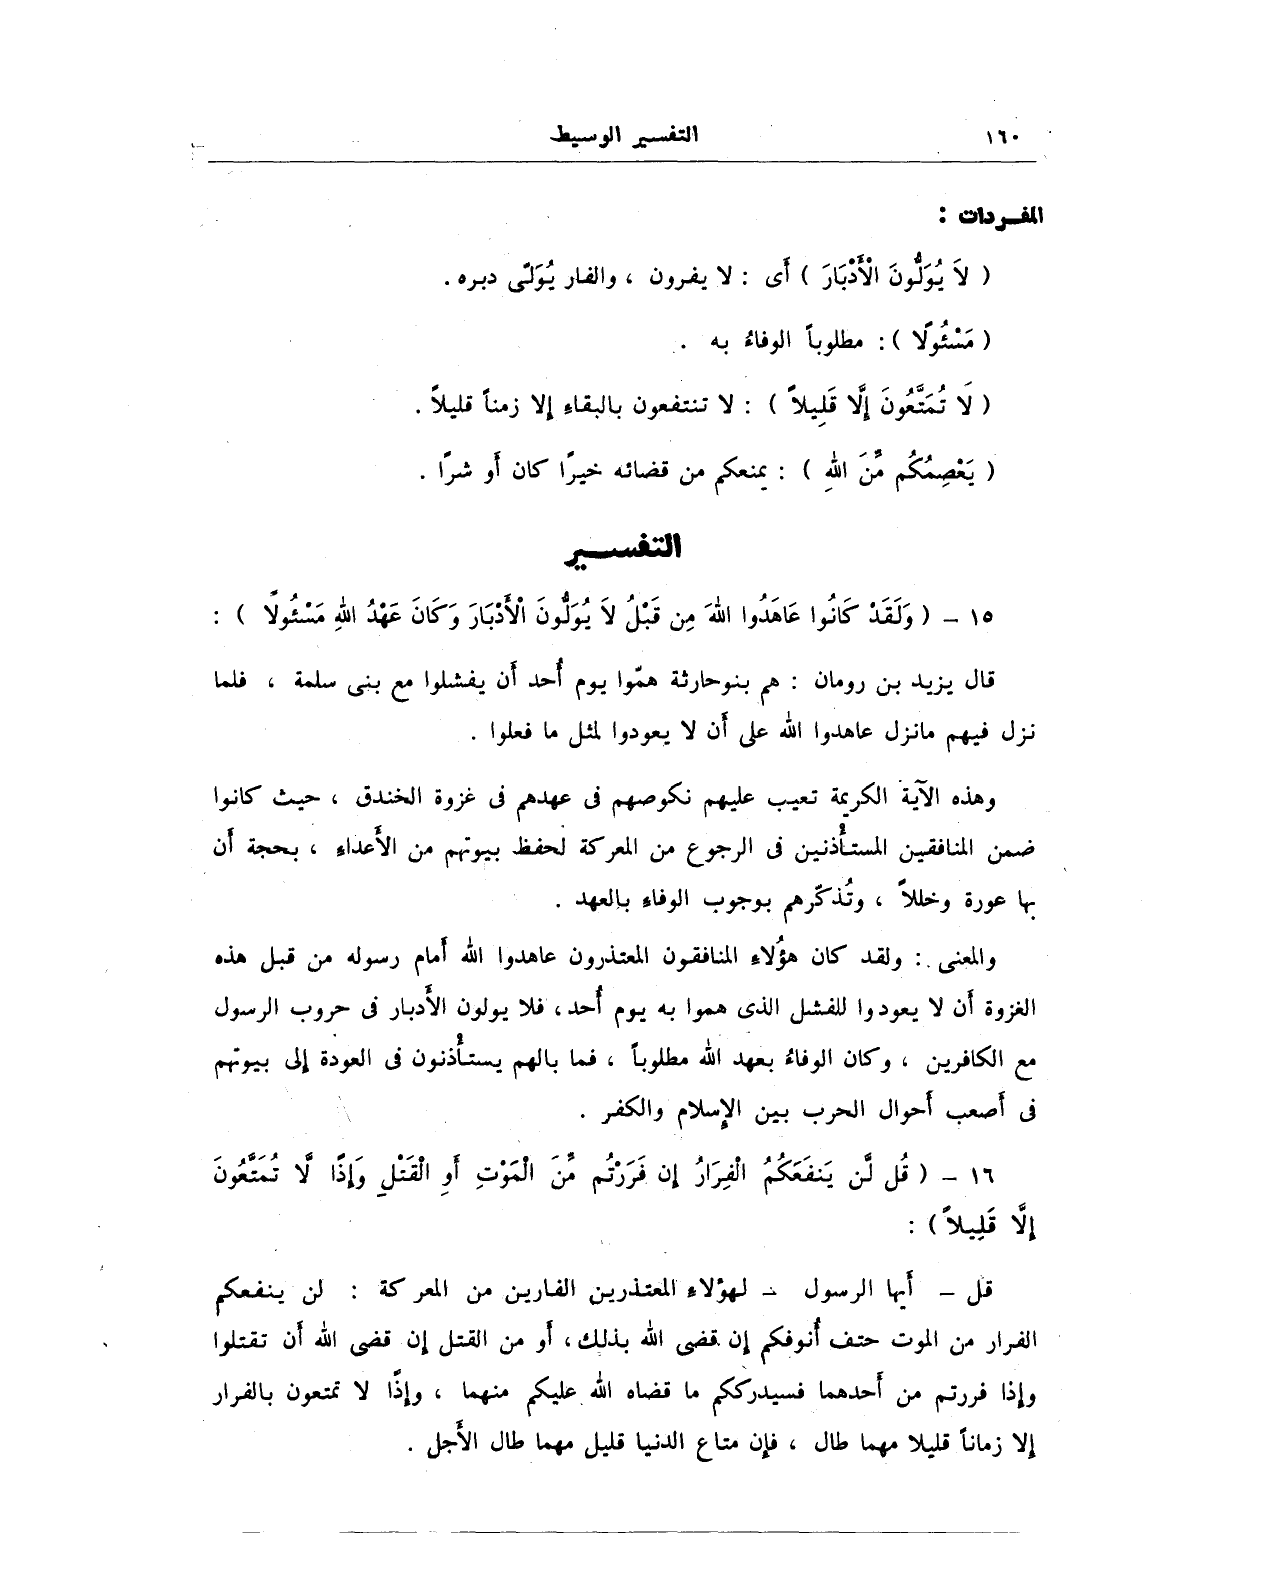 ١٦٠
التفسير الوسيط
المفـردات :
( لاَ يُوَلُّونَ الْأَدْبَارَ ) أَى : لا يفرون ، والفار يُوَلِّى دبره .
( مَسْئُولًا ) : مطلوباً الوفاءُ به .
( لَا تُمَتَّعُونَ إِلَّا قَلِيلاً ) : لا تنتفعون بالبقاءِ إلا زمناً قليلاً .
( يَعْصِمُكُم مِّنَ اللهِ ) : يمنعكم من قضائه خيرًا كان أَو شرًا .
التفســير
١٥ – ( وَلَقَدْ كَانُوا عَاهَدُوا اللهَ مِن قَبْلُ لاَ يُوَلُّونَ الْأَدْبَارَ وَكَانَ عَهْدُ اللهِ مَسْئُولًا ) :
قال يزيد بن رومان : هم بنوحارثة همّوا يوم أُحد أَن يفشلوا مع بنى سلمة ، فلما
نزل فيهم مانزل عاهدوا الله على أَن لا يعودوا لمثل ما فعلوا .
وهذه الآية الكريمة تعيب عليهم نكوصهم فى عهدهم فى غزوة الخندق ، حيث كانوا
ضمن المنافقين المستأْذنين فى الرجوع من المعركة لحفظ بيوتهم من الأَعداءِ ، بحجة أَن
بها عورة وخللاً ، وتُذكّرهم بوجوب الوفاءِ بالعهد .
والمعنى : ولقد كان هؤُلاءِ المنافقون المعتذرون عاهدوا الله أَمام رسوله من قبل هذه
الغزوة أَن لا يعودوا للفشل الذى هموا به يوم أُحد، فلا يولون الأَدبار فى حروب الرسول
مع الكافرين ، وكان الوفاءُ بعهد الله مطلوباً ، فما بالهم يستأْذنون فى العودة إلى بيوتهم
فى أَصعب أَحوال الحرب بين الإسلام والكفر .
١٦ – ( قُل لَّن يَنفَعَكُمُ الْفِرَارُ إِن فَرَرْتُم مِّنَ الْمَوْتِ أَوِ الْقَتْلِ وَإِذًا لَّا تُمَتَّعُونَ
إِلَّا قَلِيلاً ) :
قل – أَيها الرسول – لهؤلاءِ المعتذرين الفارين من المعركة : لن ينفعكم
الفرار من الموت حتف أُنوفكم إن قضى الله بذلك، أَو من القتل إن قضى الله أَن تقتلوا
وإذا فررتم من أَحدهما فسيدرككم ما قضاه الله عليكم منهما ، وإذًا لا تمتعون بالفرار
إلا زماناً قليلا مهما طال ، فإن متاع الدنيا قليل مهما طال الأَجل .